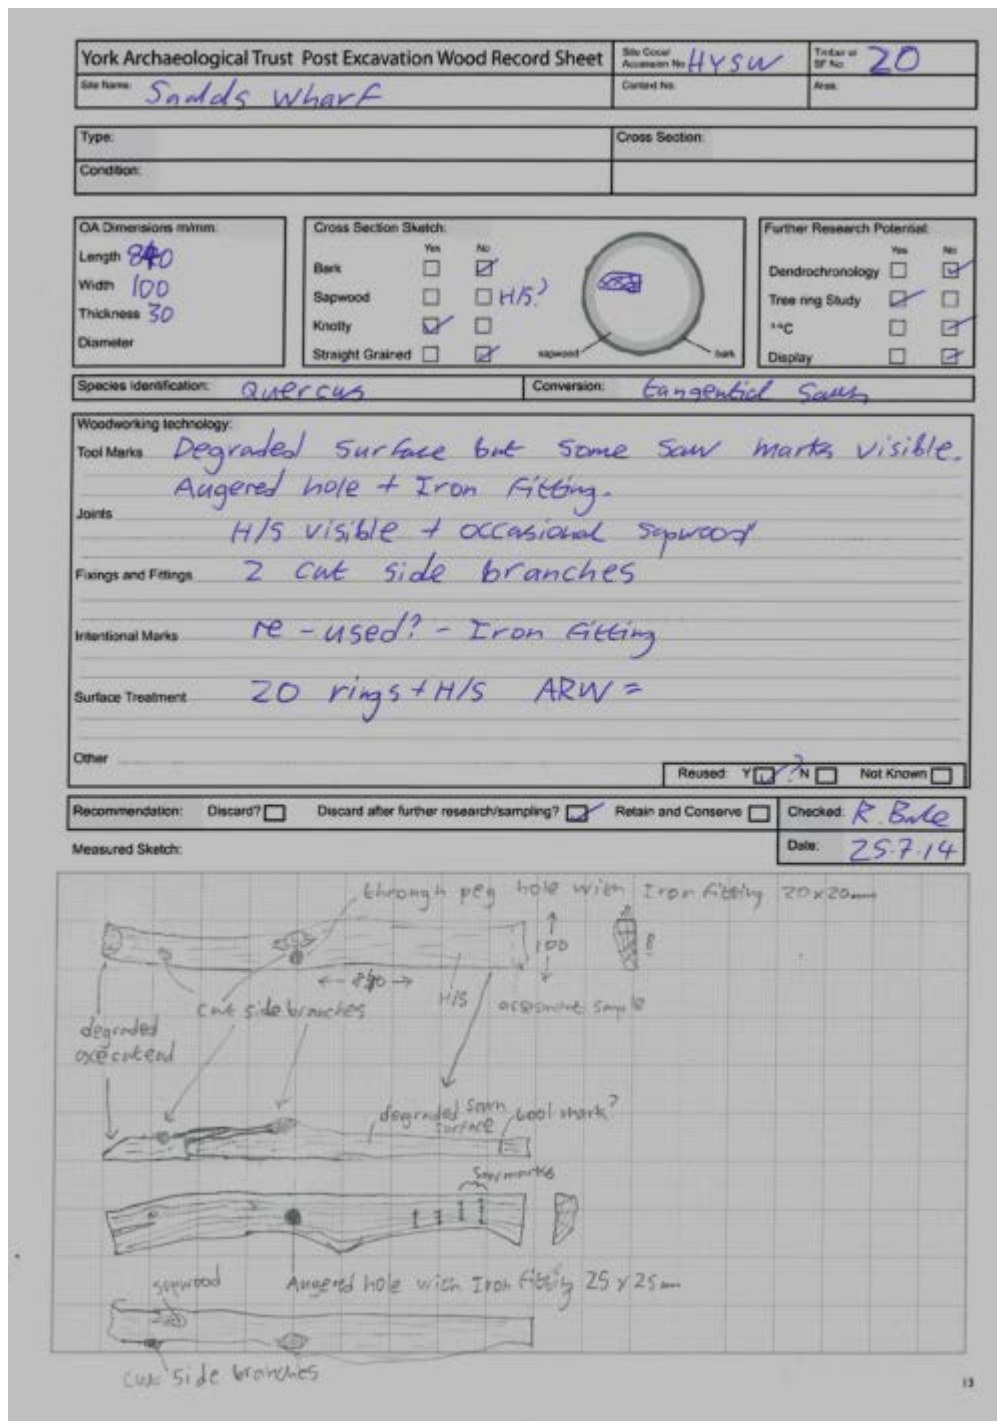 York Archaeological Trust Post Excavation Wood Record Sheet
Site Code/ Accession No HYSW
Timber or SF No: 20
Site Name: Sadds Wharf
Context No:
Area:
Type:
Cross Section:
Condition:
OA Dimensions m/mm:
Length 840
Width 100
Thickness 30
Diameter
Cross Section Sketch:
Yes No
Bark
Sapwood H/S?
Knotty
Straight Grained
sapwood bark
Further Research Potential:
Yes No
Dendrochronology
Tree ring Study
14C
Display
Species Identification: Quercus
Conversion: tangential Sawn
Woodworking technology:
Tool Marks Degraded surface but some saw marks visible.
Augered hole + Iron Fitting.
Joints
H/S visible + occasional sapwood
Fixings and Fittings 2 cut side branches
Intentional Marks re-used? - Iron Fitting
Surface Treatment 20 rings + H/S ARW =
Other
Reused: Y ? N Not Known
Recommendation: Discard? Discard after further research/sampling? Retain and Conserve
Checked: R. Bale
Date: 25.7.14
Measured Sketch:
through peg hole with Iron Fitting 20x20mm
100
840
H/S
assesment sample
cut side branches
degraded
axe cut end
degraded sawn surface
tool mark?
Saw marks
sapwood
Augered hole with Iron Fitting 25 x 25mm
cut side branches
13